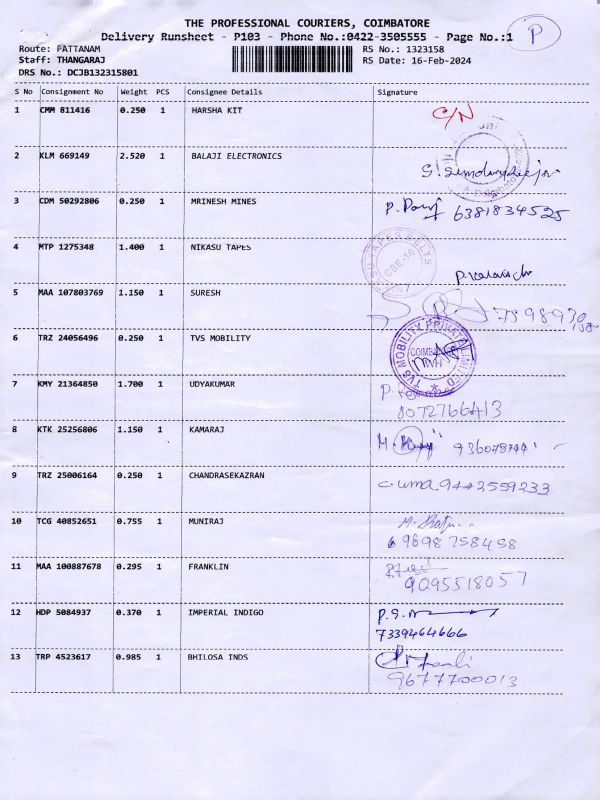 THE PROFESSIONAL COURIERS, COIMBATORE
Delivery Runsheet - P103 - Phone No.:0422-3505555 - Page No.:1
P
Route: PATTANAM RS No.: 1323158
Staff: THANGARAJ RS Date: 16-Feb-2024
DRS No.: DCJB132315801
S No Consignment No Weight PCS Consignee Details Signature
1 CMM 811416 0.250 1 HARSHA KIT C/N
2 KLM 669149 2.520 1 BALAJI ELECTRONICS
3 CDM 50292806 0.250 1 MRINESH MINES 6381834525
4 MTP 1275348 1.400 1 NIKASU TAPES
TAPES BELTS
CBE-16
5 MAA 107803769 1.150 1 SURESH
6 TRZ 24056496 0.250 1 TVS MOBILITY
TVS MOBILITY PRIVATE LIMITED
7 KMY 21364850 1.700 1 UDYAKUMAR
8072766413
8 KTK 25256806 1.150 1 KAMARAJ
9 TRZ 25006164 0.250 1 CHANDRASEKAZRAN C. uma. 9442559233
10 TCG 40852651 0.755 1 MUNIRAJ
9698758458
11 MAA 100887678 0.295 1 FRANKLIN
9095518057
12 HDP 5084937 0.370 1 IMPERIAL INDIGO
7339464666
13 TRP 4523617 0.985 1 BHILOSA INDS
9677700013